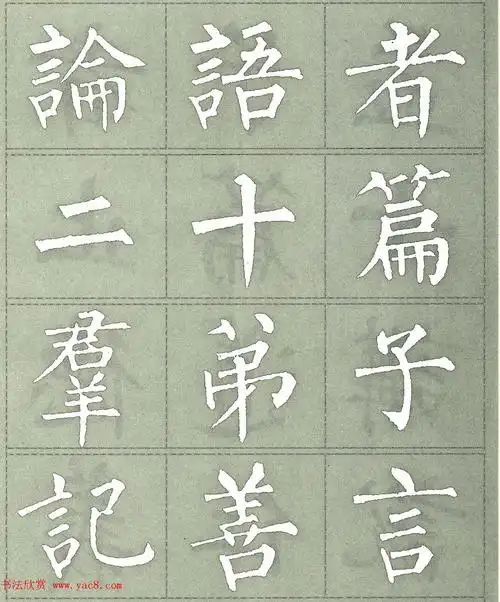 論語者
二十篇
羣弟子
記善言
书法欣赏 www.yac8.com